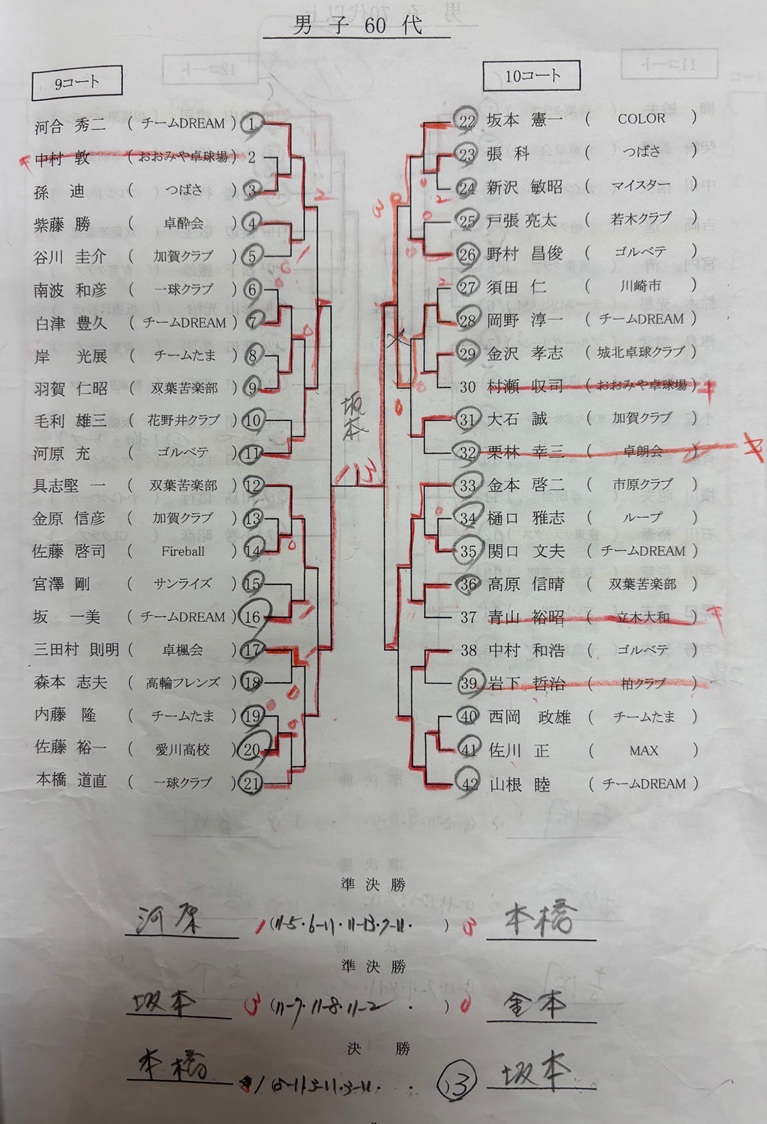 男 子 60 代
9コート
10コート
河合 秀二 ( チームDREAM ) 1
中村 敦 ( おおみや卓球場 ) 2
孫 迪 ( つばさ ) 3
紫藤 勝 ( 卓酔会 ) 4
谷川 圭介 ( 加賀クラブ ) 5
南波 和彦 ( 一球クラブ ) 6
白津 豊久 ( チームDREAM ) 7
岸 光展 ( チームたま ) 8
羽賀 仁昭 ( 双葉苦楽部 ) 9
毛利 雄三 ( 花野井クラブ ) 10
河原 充 ( ゴルベテ ) 11
具志堅 一 ( 双葉苦楽部 ) 12
金原 信彦 ( 加賀クラブ ) 13
佐藤 啓司 ( Fireball ) 14
宮澤 剛 ( サンライズ ) 15
坂 一美 ( チームDREAM ) 16
三田村 則明 ( 卓楓会 ) 17
森本 志夫 ( 高輪フレンズ ) 18
内藤 隆 ( チームたま ) 19
佐藤 裕一 ( 愛川高校 ) 20
本橋 道直 ( 一球クラブ ) 21
坂本
1 3
22 坂本 憲一 ( COLOR )
23 張 科 ( つばさ )
24 新沢 敏昭 ( マイスター )
25 戸張 亮太 ( 若木クラブ )
26 野村 昌俊 ( ゴルベテ )
27 須田 仁 ( 川崎市 )
28 岡野 淳一 ( チームDREAM )
29 金沢 孝志 ( 城北卓球クラブ )
30 村瀬 収司 ( おおみや卓球場 )
31 大石 誠 ( 加賀クラブ )
32 栗林 幸三 ( 卓朗会 )
33 金本 啓二 ( 市原クラブ )
34 樋口 雅志 ( ループ )
35 関口 文夫 ( チームDREAM )
36 高原 信晴 ( 双葉苦楽部 )
37 青山 裕昭 ( 立木大和 )
38 中村 和浩 ( ゴルベテ )
39 岩下 哲治 ( 柏クラブ )
40 西岡 政雄 ( チームたま )
41 佐川 正 ( MAX )
42 山根 睦 ( チームDREAM )
準 決 勝
河原 1 (11-5・6-11・11-13・7-11・ ) 3 本橋
準 決 勝
坂本 3 (11-7・11-8・11-2 ・ ) 0 金本
決 勝
本橋 1 ( ・ ・ 3 坂本